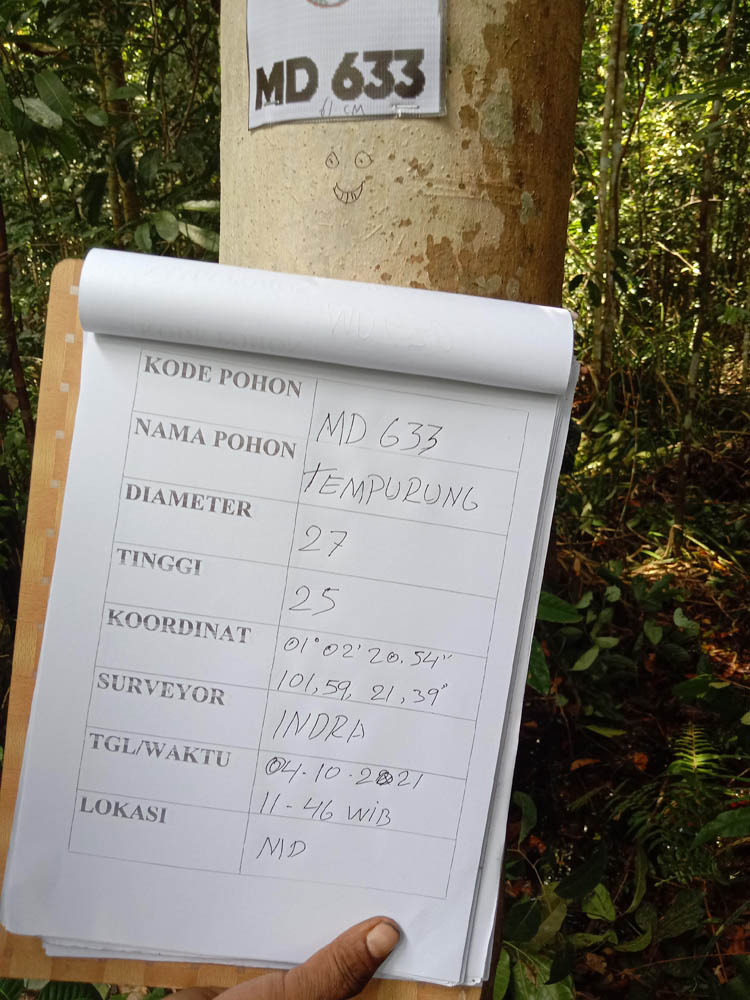 MD 633
61 CM
KODE POHON MD 633
NAMA POHON TEMPURUNG
DIAMETER 27
TINGGI 25
KOORDINAT 01° 02' 20.54"
101,59, 21,39"
SURVEYOR INDRA
TGL/WAKTU 04.10.2021
11-46 WIB
LOKASI MD